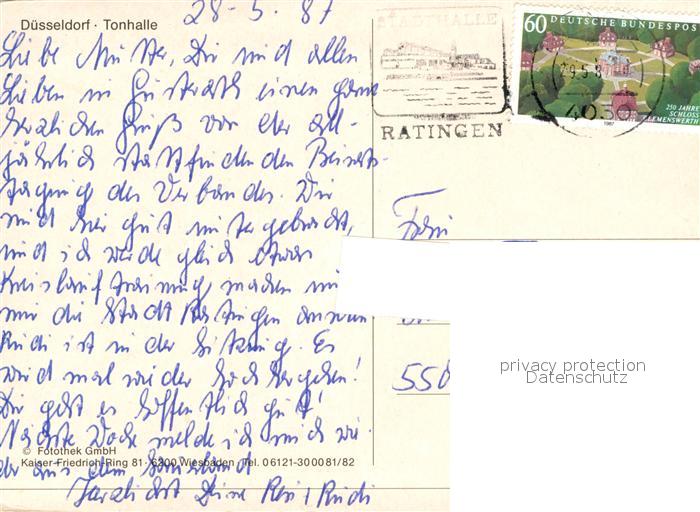 28-5.87
Düsseldorf · Tonhalle
Liebe Mutter, Dir und allen
Lieben in Gusterath einen ganz
herzlichen Gruß von der all-
jährlich stattfindenden Beirats-
tagung des Verbandes. Wir
sind hier gut untergebracht,
und ich werde gleich etwas
Kreislauftraining machen und
mir die Stadt Ratingen ansehen
Rudi ist in der Sitzung. Es
wird mal wieder hoch hergehen!
Dir geht es hoffentlich gut!
Nächste Woche melde ich mich wie-
der aus dem Sauerland
Herzlichst Deine + Rudi
© Fotothek GmbH
Kaiser-Friedrich-Ring 81 · 6200 Wiesbaden · Tel. 06121-300081/82
STADTHALLE
RATINGEN
60 DEUTSCHE BUNDESPOST
250 JAHRE
SCHLOSS
CLEMENSWERTH
1987
4030
Frau
550
privacy protection
Datenschutz